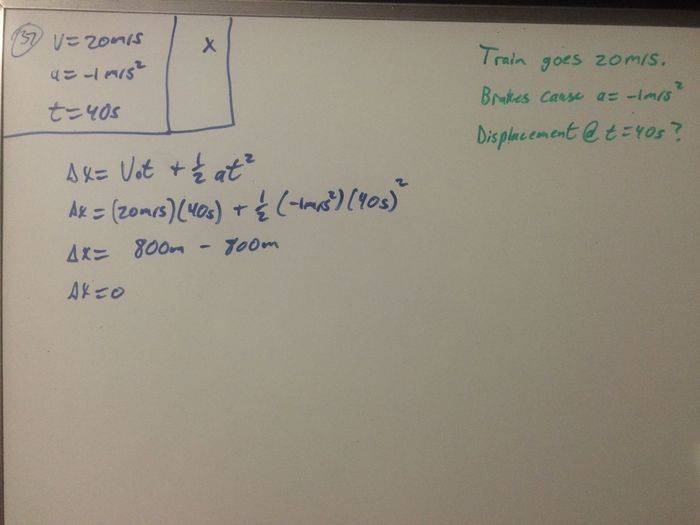 37 V = 20m/s
a = -1m/s²
t = 40s
X
Train goes 20m/s.
Brakes cause a = -1m/s²
Displacement @ t=40s?
Δx = V₀t + ½ at²
Δx = (20m/s)(40s) + ½ (-1m/s²)(40s)²
Δx = 800m - 800m
Δx = 0